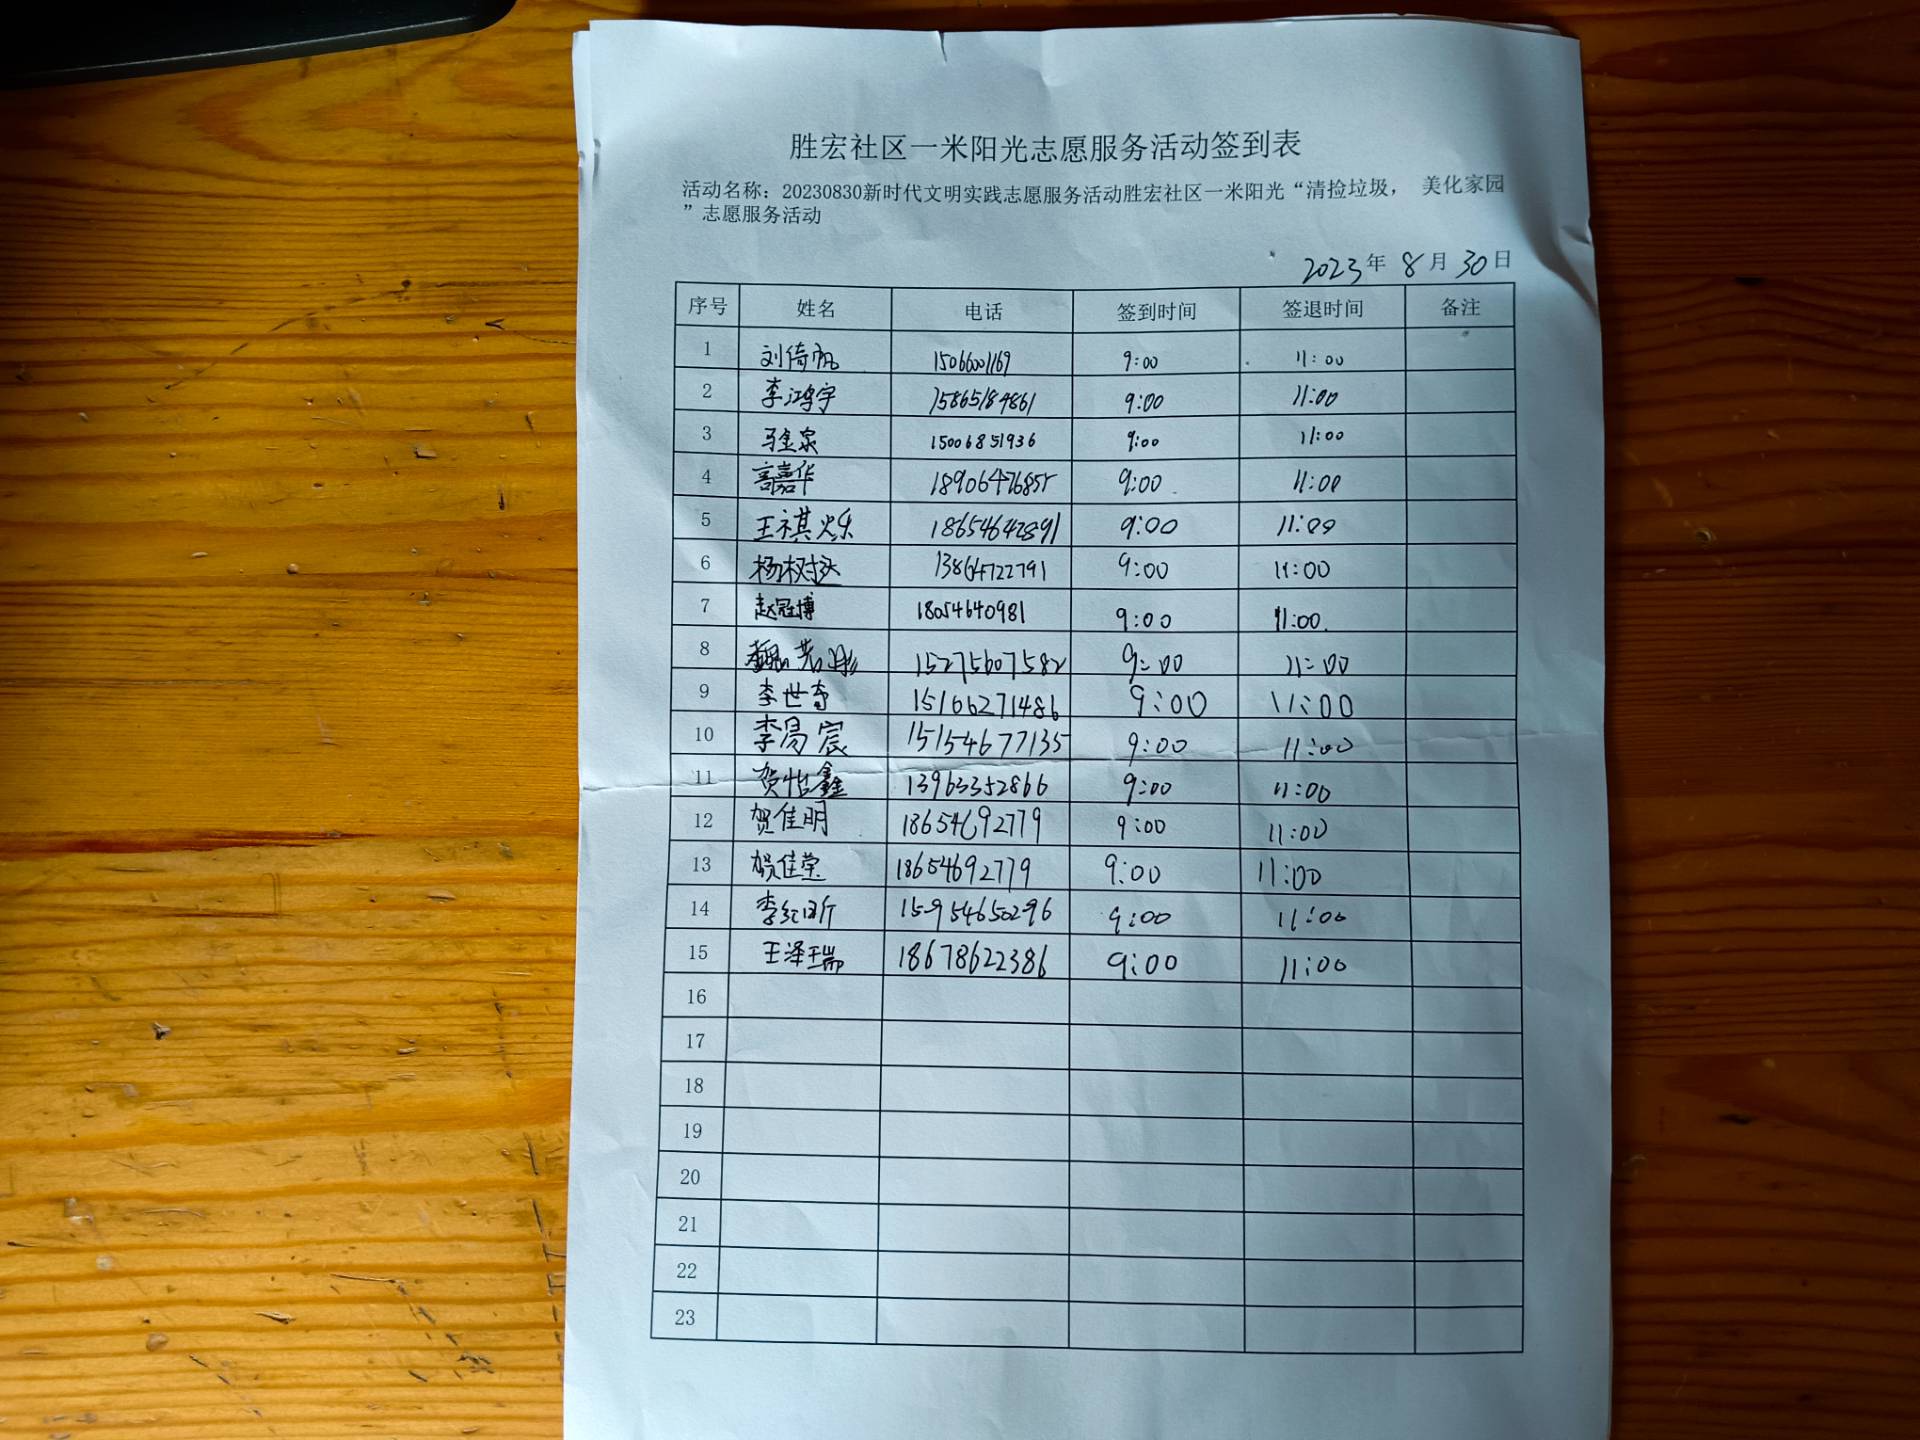 胜宏社区一米阳光志愿服务活动签到表
活动名称：20230830新时代文明实践志愿服务活动胜宏社区一米阳光“清捡垃圾， 美化家园
”志愿服务活动
2023年 8月 30日
序号 姓名 电话 签到时间 签退时间 备注
1 刘倚帆 15066001169 9:00 11:00
2 李鸿宇 15865184861 9:00 11:00
3 马金泉 15006851936 9:00 11:00
4 高嘉华 18906476855 9:00 11:00
5 王祺烁 18654642891 9:00 11:00
6 杨树 13864722791 9:00 11:00
7 赵冠博 18054640981 9:00 11:00
8 魏 15275607582 9:00 11:00
9 李世 15166271486 9:00 11:00
10 李易宸 15154677135 9:00 11:00
11 贺怡鑫 13963352866 9:00 11:00
12 贺佳明 18654692779 9:00 11:00
13 贺佳莹 18654692779 9:00 11:00
14 李 15954650296 9:00 11:00
15 王泽瑞 18678622386 9:00 11:00
16
17
18
19
20
21
22
23